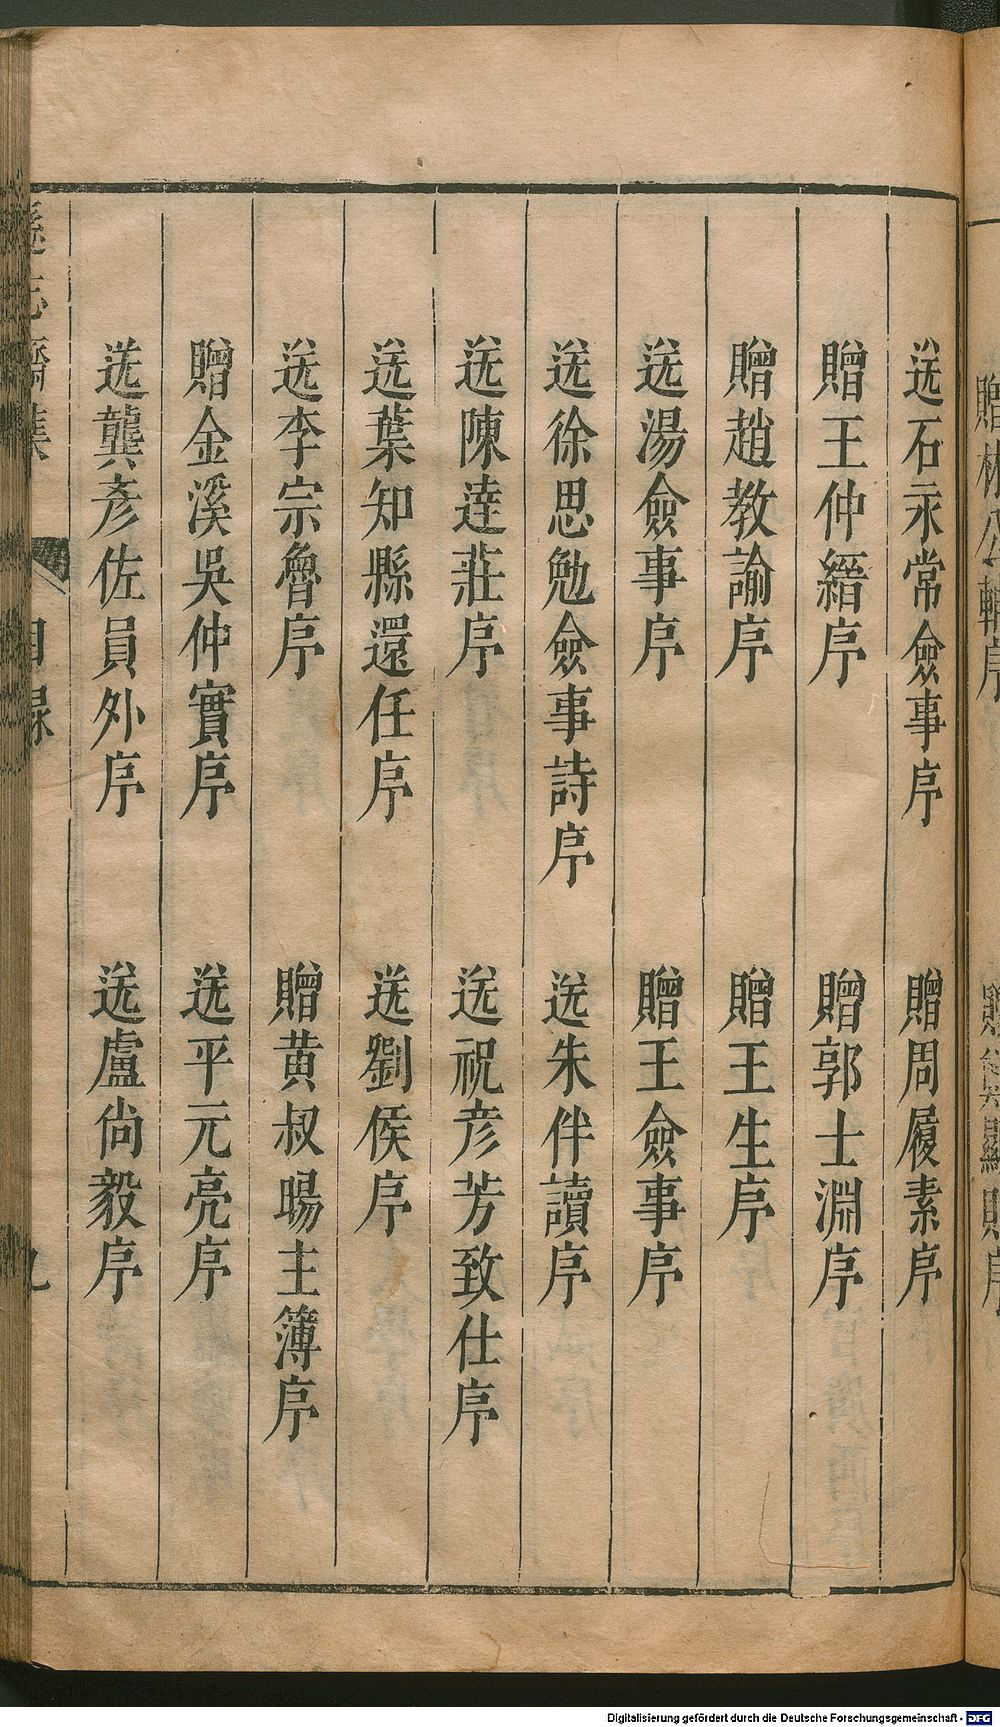 送石永常僉事序　贈周履素序
贈王仲縉序　贈郭士淵序
贈趙教諭序　贈王生序
送湯僉事序　贈王僉事序
送徐思勉僉事詩序　送朱伴讀序
送陳達莊序　送祝彥芳致仕序
送葉知縣還任序　送劉侯序
送李宗魯序　贈黄叔暘主簿序
贈金溪吳仲實序　送平元亮序
送龔彥佐員外序　送盧尚毅序
目錄
九
Digitalisierung gefördert durch die Deutsche Forschungsgemeinschaft - DFG